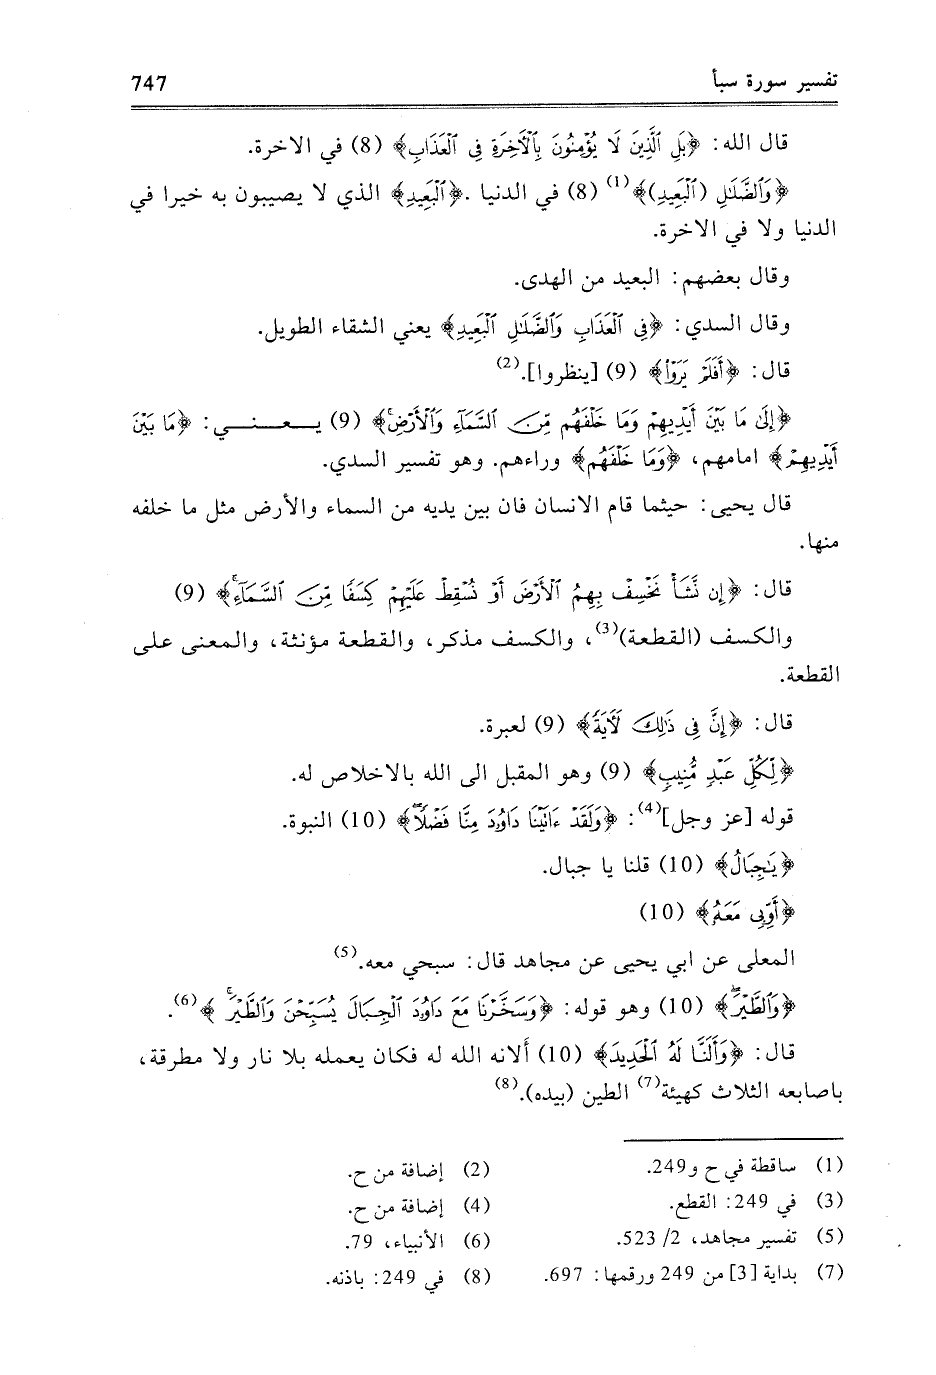 تفسير سورة سبأ 747
قال الله: ﴿بَلِ ٱلَّذِينَ لَا يُؤْمِنُونَ بِٱلْآخِرَةِ فِى ٱلْعَذَابِ﴾ (8) في الاخرة.
﴿وَٱلضَّلَٰلِ (ٱلْبَعِيدِ)﴾(1) (8) في الدنيا .﴿ٱلْبَعِيدِ﴾ الذي لا يصيبون به خيرا في
الدنيا ولا في الاخرة.
وقال بعضهم: البعيد من الهدى.
وقال السدي: ﴿فِى ٱلْعَذَابِ وَٱلضَّلَٰلِ ٱلْبَعِيدِ﴾ يعني الشقاء الطويل.
قال: ﴿أَفَلَمْ يَرَوْا۟﴾ (9) [ينظروا].(2)
﴿إِلَىٰ مَا بَيْنَ أَيْدِيهِمْ وَمَا خَلْفَهُم مِّنَ ٱلسَّمَآءِ وَٱلْأَرْضِ﴾ (9) يـعـنـي: ﴿مَا بَيْنَ
أَيْدِيهِمْ﴾ امامهم، ﴿وَمَا خَلْفَهُم﴾ وراءهم. وهو تفسير السدي.
قال يحيى: حيثما قام الانسان فان بين يديه من السماء والأرض مثل ما خلفه
منها.
قال: ﴿إِن نَّشَأْ نَخْسِفْ بِهِمُ ٱلْأَرْضَ أَوْ نُسْقِطْ عَلَيْهِمْ كِسَفًا مِّنَ ٱلسَّمَآءِ﴾ (9)
والكسف (القطعة)(3)، والكسف مذكر، والقطعة مؤنثة، والمعنى على
القطعة.
قال: ﴿إِنَّ فِى ذَٰلِكَ لَآيَةً﴾ (9) لعبرة.
﴿لِّكُلِّ عَبْدٍ مُّنِيبٍ﴾ (9) وهو المقبل الى الله بالاخلاص له.
قوله [عز وجل](4): ﴿وَلَقَدْ ءَاتَيْنَا دَاوُۥدَ مِنَّا فَضْلًا﴾ (10) النبوة.
﴿يَٰجِبَالُ﴾ (10) قلنا يا جبال.
﴿أَوِّبِى مَعَهُۥ﴾ (10)
المعلى عن ابي يحيى عن مجاهد قال: سبحي معه.(5)
﴿وَٱلطَّيْرَ﴾ (10) وهو قوله: ﴿وَسَخَّرْنَا مَعَ دَاوُۥدَ ٱلْجِبَالَ يُسَبِّحْنَ وَٱلطَّيْرَ﴾(6).
قال: ﴿وَأَلَنَّا لَهُ ٱلْحَدِيدَ﴾ (10) ألانه الله له فكان يعمله بلا نار ولا مطرقة،
باصابعه الثلاث كهيئة(7) الطين (بيده).(8)
(1) ساقطة في ح و249. (2) إضافة من ح.
(3) في 249: القطع. (4) إضافة من ح.
(5) تفسير مجاهد، 2/ 523. (6) الأنبياء، 79.
(7) بداية [3] من 249 ورقمها: 697. (8) في 249: باذنه.